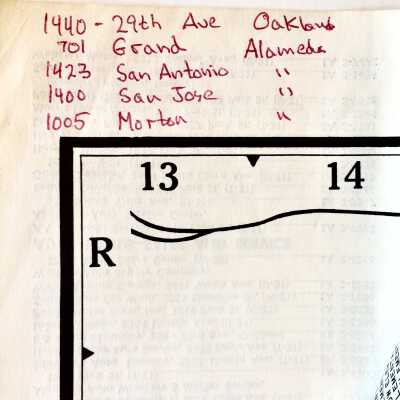 1440 - 29th Ave Oakland
701 Grand Alameda
1423 San Antonio "
1400 San Jose "
1005 Morton "
13 14
R